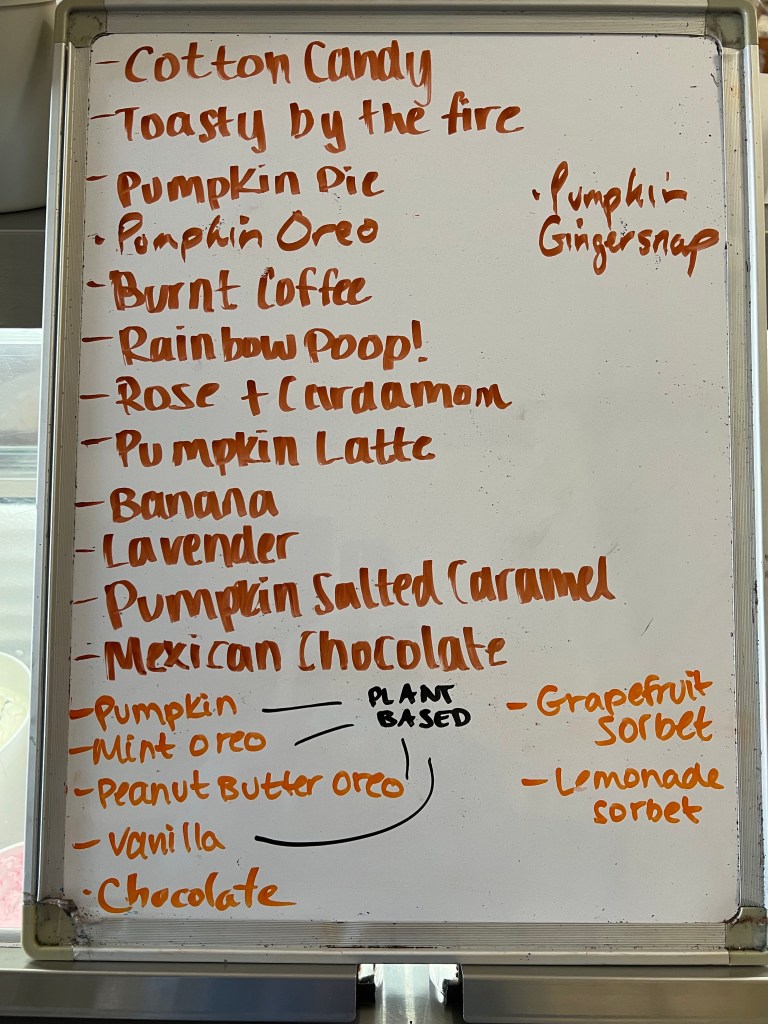 - Cotton Candy
- Toasty by the fire
- Pumpkin Pie
· Pumpkin Oreo
· Pumpkin
Gingersnap
- Burnt Coffee
- Rainbow Poop!
- Rose + Cardamom
- Pumpkin Latte
- Banana
- Lavender
- Pumpkin Salted Caramel
- Mexican Chocolate
- Pumpkin
- Mint Oreo
- Peanut Butter Oreo
- Vanilla
· Chocolate
PLANT
BASED
- Grapefruit
Sorbet
- Lemonade
Sorbet